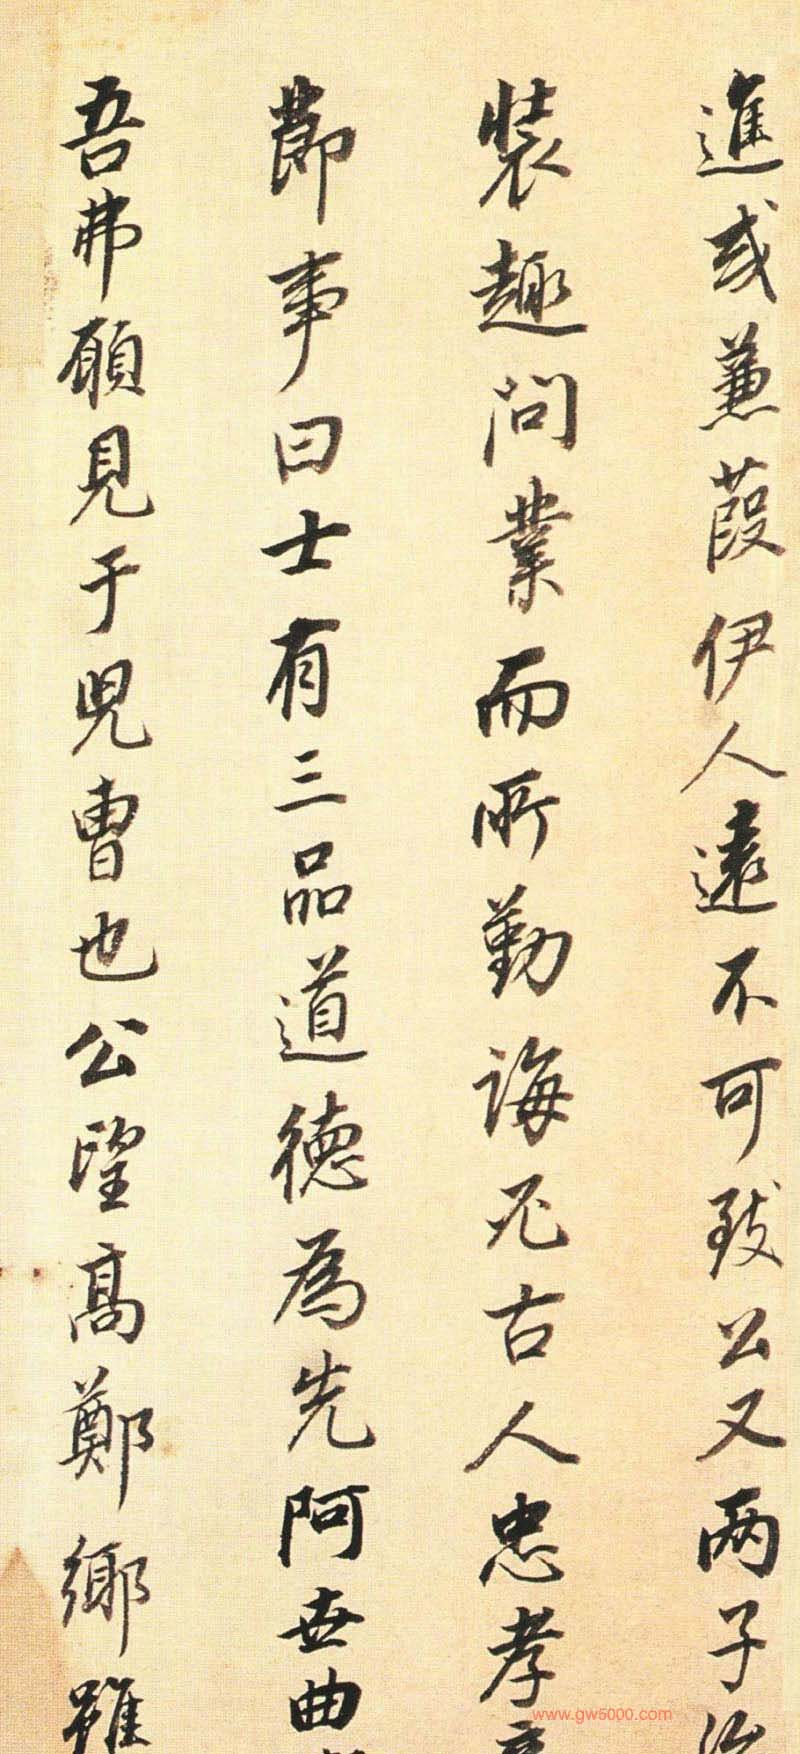 進或蒹葭伊人遠不可致公又兩子
裝趣問業而所勤誨古人忠孝
節事曰士有三品道德為先阿世曲
吾弗願見于兒曹也公望高鄭鄉雖
www.gw5000.com